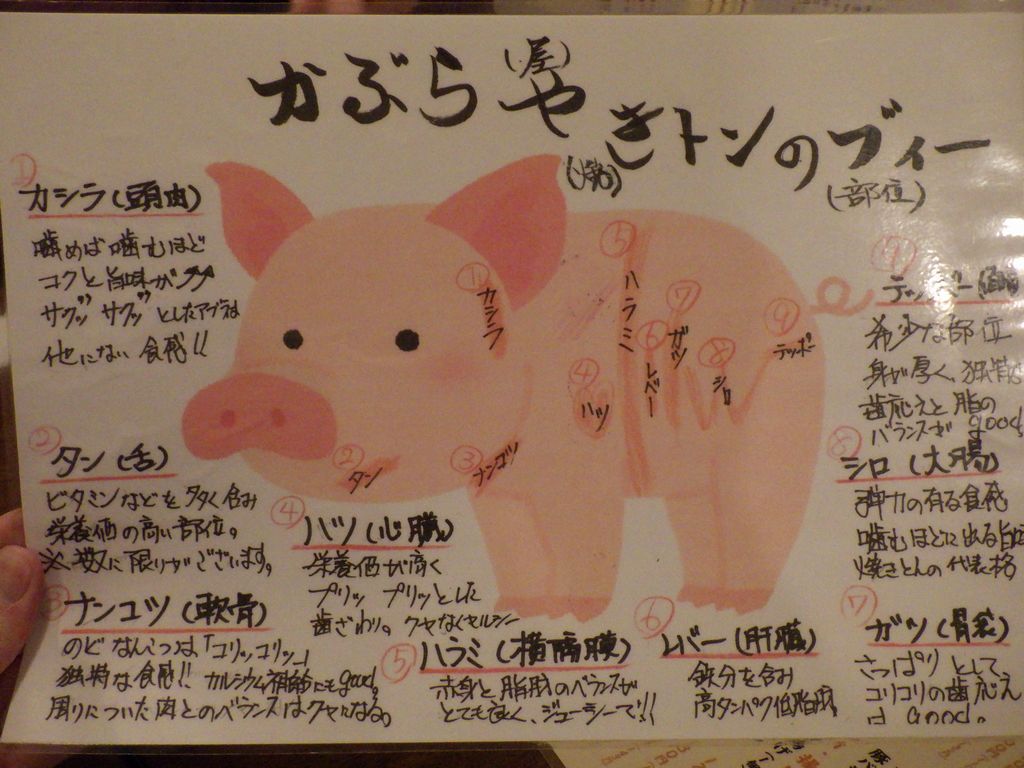 かぶらや(屋)
きトンのブィー
(焼) (部位)
① カシラ(頭肉)
噛めば噛むほど
コクと旨味が
サクッ サクッ としたアブラは
他にない食感!!
② タン(舌)
ビタミンなどを多く含み
栄養価の高い部位。
※数に限りがございます。
③ ナンコツ(軟骨)
のどなんこつは「コリッコリッ」
独特な食感!! カルシウム補給にもgood。
周りについた肉とのバランスはクセになる。
④ ハツ(心臓)
栄養価が高く
プリッ プリッとした
歯ざわり。クセなくヘルシー
⑤ ハラミ(横隔膜)
赤身と脂肪のバランスが
とても良く、ジューシーで!!
⑥ レバー(肝臓)
鉄分を含み
高タンパク低脂肪。
⑦ ガツ(胃袋)
さっぱりとして、
コリコリの歯応え
は Good。
⑧ シロ(大腸)
弾力の有る食感
噛むほどに出る旨味
焼きとんの代表格
⑨ テッポー(直腸)
希少な部位
身が厚く、独特な
歯応えと脂の
バランスが good。
① カシラ
② タン
③ ナンコツ
④ ハツ
⑤ ハラミ
⑥ レバー
⑦ ガツ
⑧ シロ
⑨ テッポー